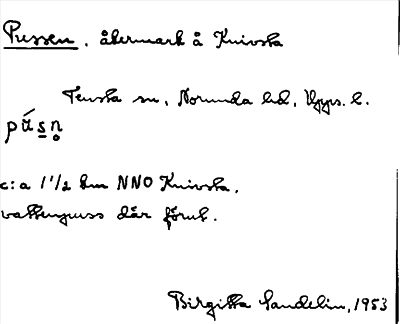 Pussen, åkermark å Knivsta
Tensta sn, Norunda hd, Upps. l.
pūsn̥
c:a 1 1/2 km NNO Knivsta.
vattenpuss där förut.
Birgitta Sandelin, 1953